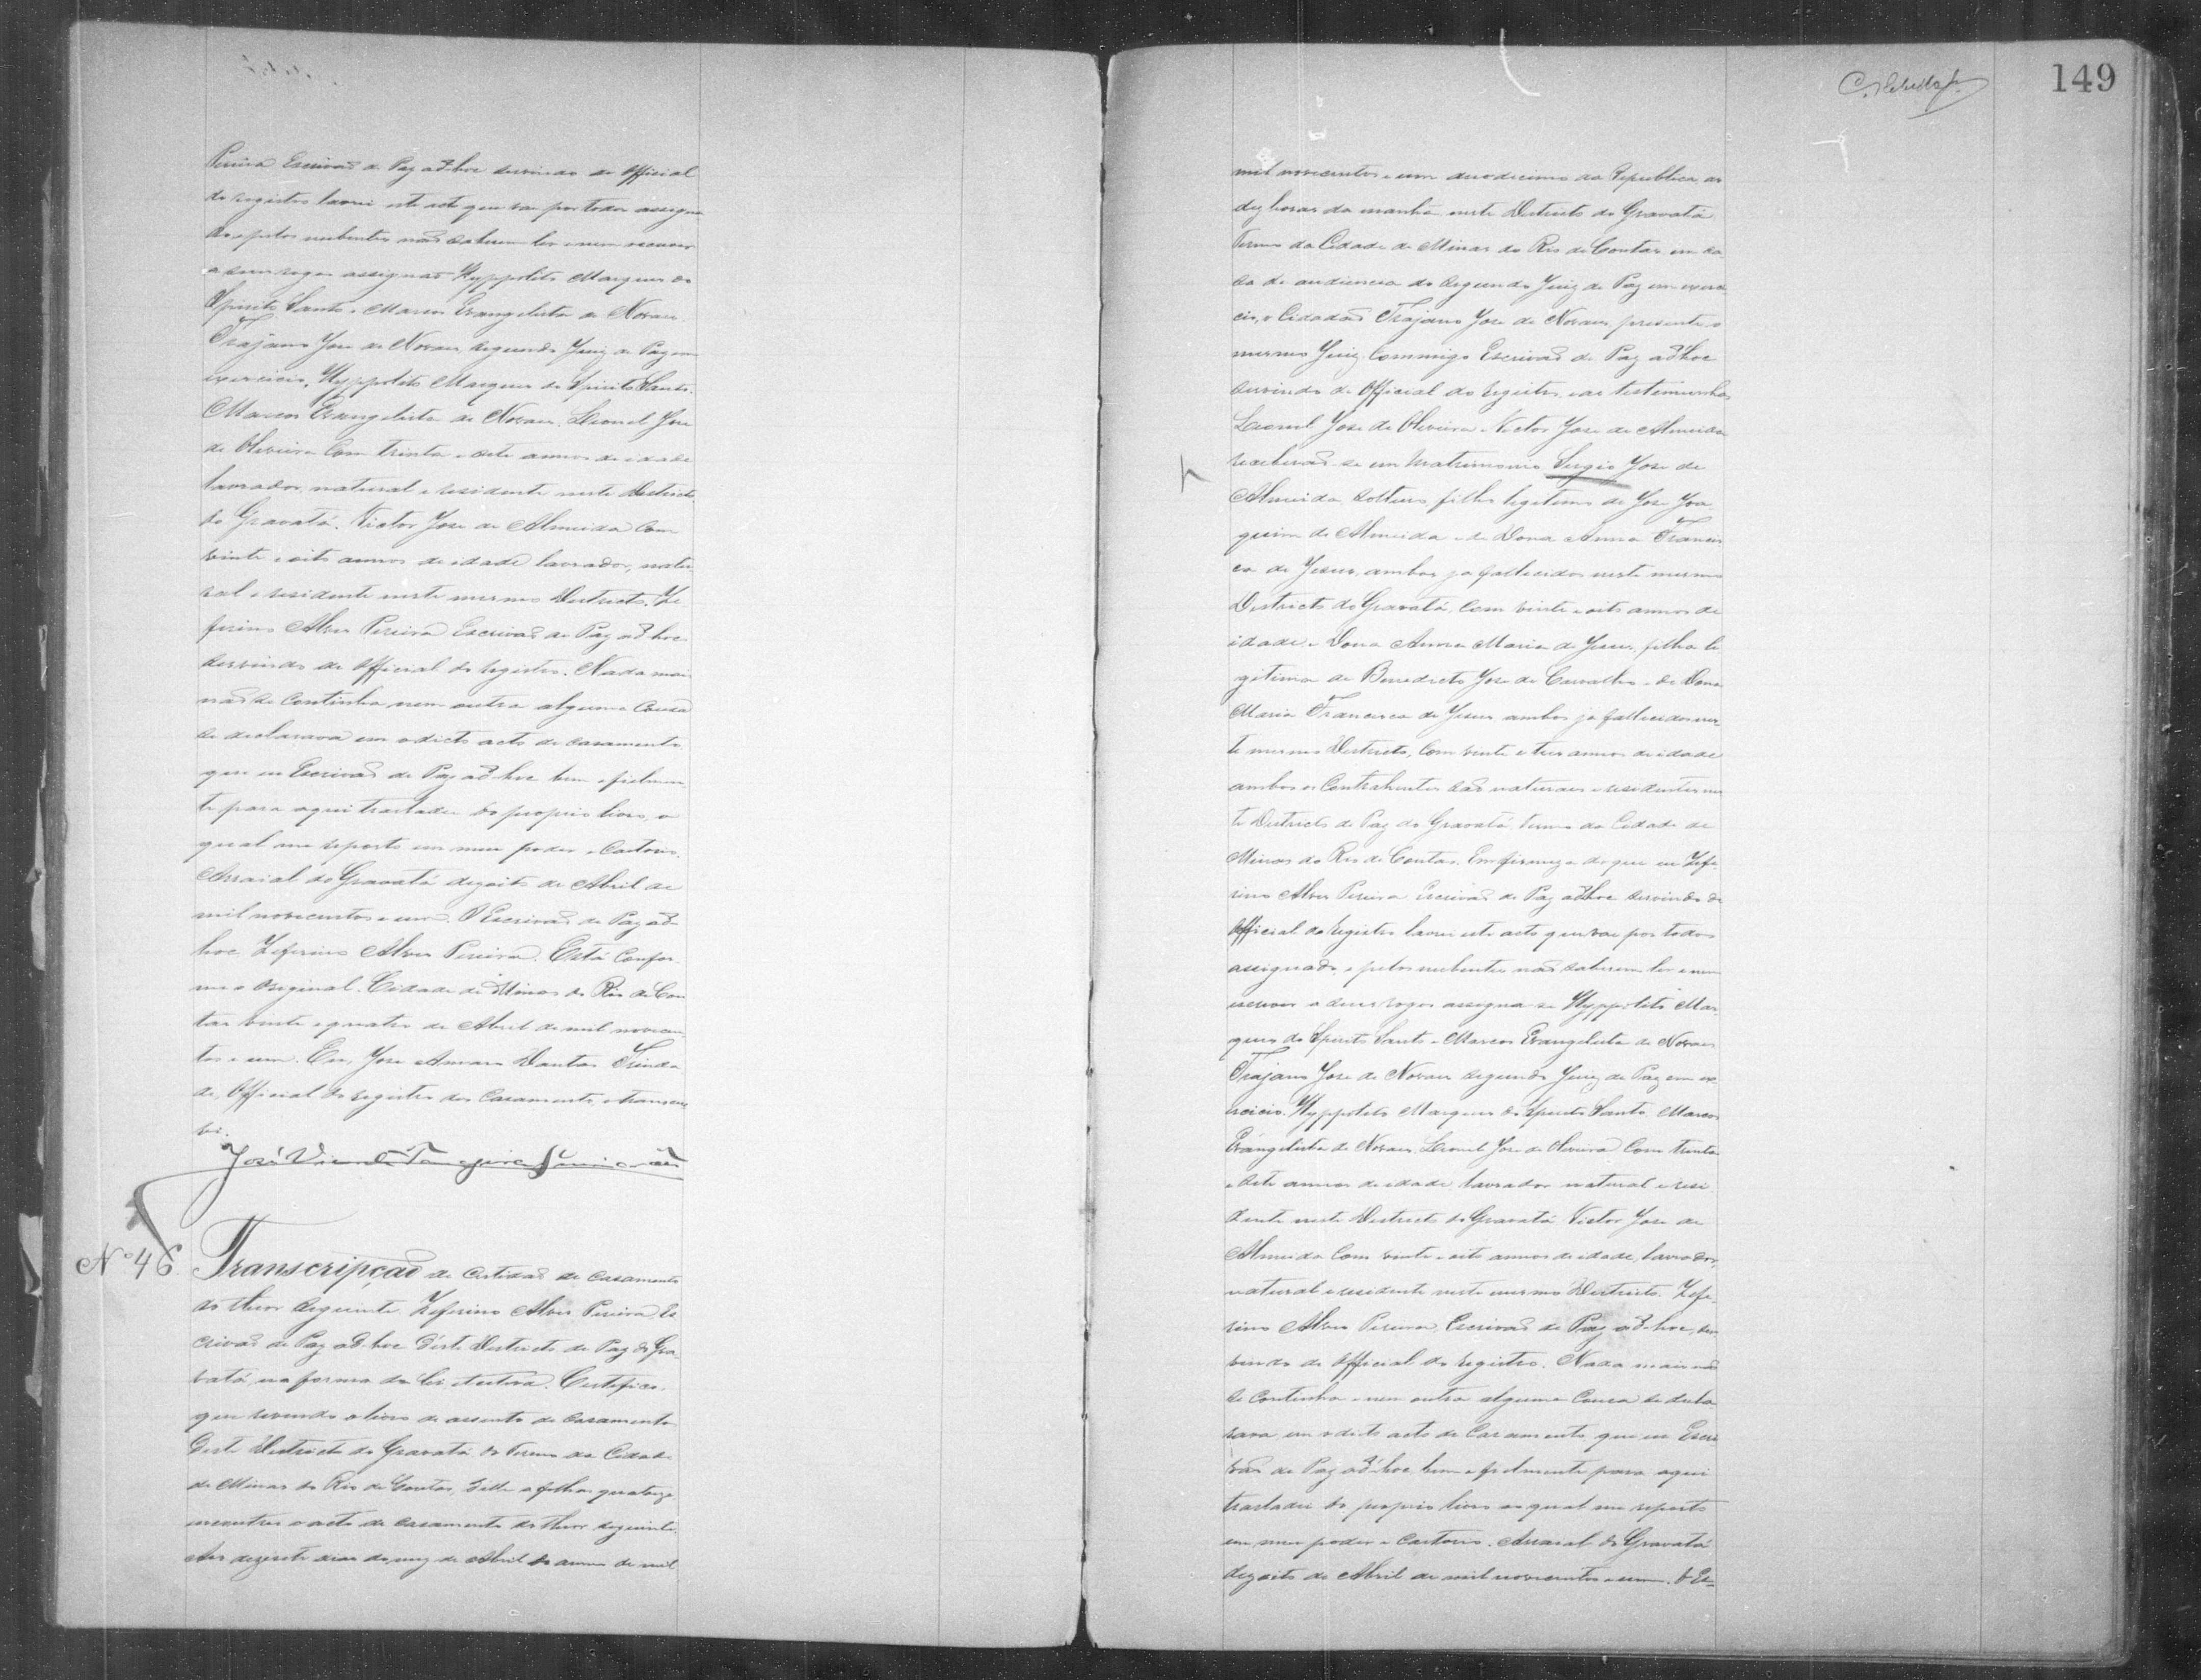 Pereira Escrivaõ de Paz ad hoc servindo de Official
do registro lavrei este acto que vae por todos assigna
do e pelos nubentes naõ saberem ler e nem escrever
a seus rogos assignaõ Hyppolito Marques do
Spirito Santo e Marcos Evangelista de Novaes.
Trajano Jose de Novaes segundo Juiz de Paz em
exercicio, Hyppolito Marques do Spirito Santo.
Marcos Evangelista de Novaes. Leonel Jose
de Oliveira Com trinta e sete annos de idade
lavrador, natural e residente neste Districto
do Gravatá. Victor Jose de Almeida Com
vinte e oito annos de idade lavrador, natu
ral e residente neste mesmo Districto. Ze
ferino Alves Pereira Escrivaõ de Paz ad hoc
servindo de Official do registro. Nada mais
naõ se Continha nem outra alguma Cousa
se declarava em o dicto acto de casamento
que eu Escrivaõ de Paz ad hoc bem e fielmen
te para aqui trasladei do proprio livro, o
qual me reporto em meu poder e Cartorio.
Arraial do Gravatá dezoito de Abril de
mil novecentos e um. O Escrivaõ de Paz ad
hoc Zeferino Alves Pereira. Está Confor
me o Original. Cidade de Minas do Rio de Con
tas vinte e quatro de Abril de mil novecen
tos e um. Eu, Jose Amaro Dantas Trinda
de, Official do registro dos Casamentos, o transcre
vi.
José
Nº 46 Transcripçaõ de Certidaõ de Casamento
do theor seguinte. Zeferino Alves Pereira, Es
crivaõ de Paz ad hoc deste Districto de Paz do Gra
vatá, na forma da lei etcetera. Certifico,
que revendo o livro de assento de Casamento
deste Districto do Gravatá do Termo da Cidade
de Minas do Rio de Contas, delle a folhas quatorze
encontrei o acto de casamento do theor seguinte.
Aos dezesete dias do mez de Abril do anno de mil
149
mil novecentos e um duodecimo da Republica, as
dez horas da manhã neste Districto do Gravatá
Termo da Cidade de Minas do Rio de Contas em ca
sa de audiencia do segundo Juiz de Paz em exerci
cio, o Cidadaõ Trajano Jose de Novaes, presente o
mesmo Juiz Commigo Escrivaõ de Paz ad hoc
servindo de Official do registro, e as testemunhas
Leonel Jose de Oliveira e Victor Jose de Almeida
receberaõ-se em Matrimonio Sergio Jose de
Almeida, solteiro, filho legitimo de Jose Joa
quim de Almeida e de Dona Anna Francis
ca de Jesus, ambos ja fallecidos neste mesmo
Districto do Gravatá, Com vinte e oito annos de
idade e Dona Anna Maria de Jesus, filha le
gitima de Benedicto Jose de Carvalho e de Dona
Maria Francisca de Jesus ambos ja fallecidos nes
te mesmo Districto, Com vinte e tres annos de idade
ambos os Contrahentes saõ naturaes e residentes nes
te Districto de Paz do Gravatá, termo da Cidade de
Minas do Rio de Contas. Em firmeza do que eu Zefe
rino Alves Pereira Escrivaõ de Paz ad hoc servindo de
Official do registro lavrei este acto que vae por todos
assignado, e pelos nubentes naõ saberem ler e nem
escrever a seus rogos assigna-se Hyppolito Mar
ques do Spirito Santo e Marcos Evangelista de Novaes
Trajano Jose de Novaes segundo Juiz de Paz em ex
ercicio. Hyppolito Marques do Spirito Santo. Marcos
Evangelista de Novaes. Leonel Jose de Oliveira Com trinta
e sete annos de idade lavrador natural e resi
dente neste Districto do Gravatá. Victor Jose de
Almeida Com vinte e oito annos de idade, lavrador,
natural e residente neste mesmo Districto. Zefe
rino Alves Pereira, Escrivaõ de Paz ad-hoc, ser
vindo de Official do registro. Nada mais naõ
se Continha e nem outra alguma Cousa se decla
rava em o dito acto de Casamento que eu Escri
vaõ de Paz ad-hoc bem e fielmente para aqui
trasladei do proprio livro ao qual me reporto
em meu poder e Cartorio. Arraial do Gravatá
dezoito de Abril de mil novecentos e um. O Es=